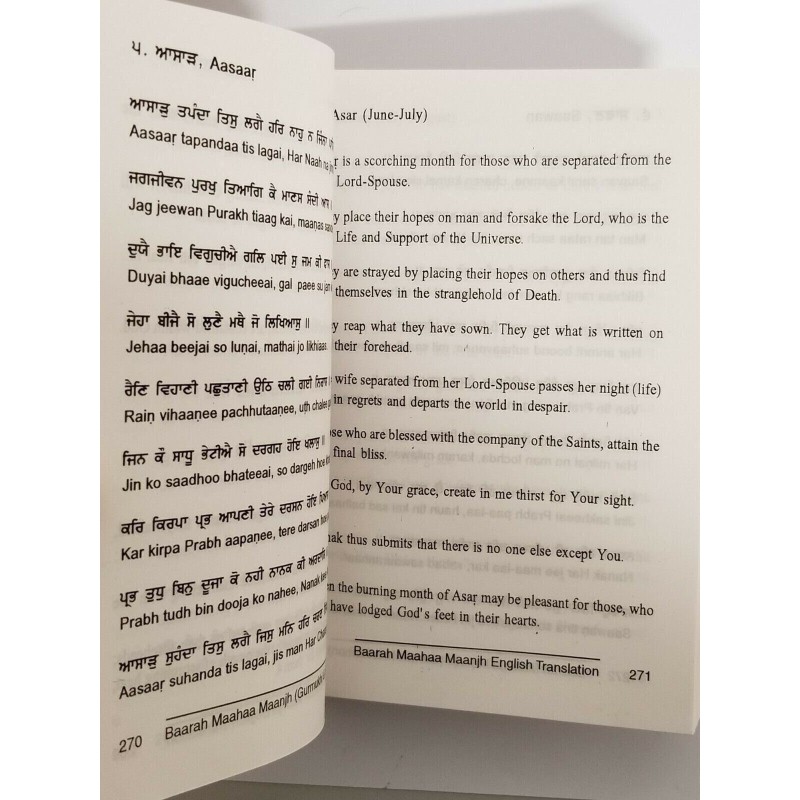 ੫. ਆਸਾੜ, Aasaaṛ
ਆਸਾੜੁ ਤਪੰਦਾ ਤਿਸੁ ਲਗੈ ਹਰਿ ਨਾਹੁ ਨ ਜਿੰਨਾ
Aasaaṛ tapandaa tis lagai, Har Naah na
ਜਗਜੀਵਨ ਪੁਰਖੁ ਤਿਆਗਿ ਕੈ ਮਾਣਸ ਸੰਦੀ ਆਸ
Jag jeewan Purakh tiaag kai, maaṇas
ਦੁਯੈ ਭਾਇ ਵਿਗੁਚੀਐ ਗਲਿ ਪਈ ਸੁ ਜਮ ਕੀ
Duyai bhaae vigucheeai, gal paee su
ਜੇਹਾ ਬੀਜੈ ਸੋ ਲੁਣੈ ਮਥੈ ਜੋ ਲਿਖਿਆਸੁ ॥
Jehaa beejai so luṇai, mathai jo likhiaas.
ਰੈਣਿ ਵਿਹਾਣੀ ਪਛੁਤਾਣੀ ਉਠਿ ਚਲੀ ਗਈ
Raiṇ vihaaṇee pachhutaaṇee, uṭh chalee
ਜਿਨ ਕੌ ਸਾਧੂ ਭੇਟੀਐ ਸੋ ਦਰਗਹ ਹੋਇ ਖਲਾਸੁ ॥
Jin ko saadhoo bhateeai, so dargeh hoe
ਕਰਿ ਕਿਰਪਾ ਪ੍ਰਭ ਆਪਣੀ ਤੇਰੇ ਦਰਸਨ ਹੋਇ
Kar kirpa Prabh aapaṇee, tere darsan
ਪ੍ਰਭ ਤੁਧੁ ਬਿਨੁ ਦੂਜਾ ਕੋ ਨਹੀ ਨਾਨਕ ਕੀ
Prabh tudh bin dooja ko nahee, Nanak
ਆਸਾੜੁ ਸੁਹੰਦਾ ਤਿਸੁ ਲਗੈ ਜਿਸੁ ਮਨਿ ਹਰਿ
Aasaaṛ suhanda tis lagai, jis man Har
Baarah Maahaa Maanjh
270
Asar (June-July)
r is a scorching month for those who are separated from the
Lord-Spouse.
y place their hopes on man and forsake the Lord, who is the
Life and Support of the Universe.
y are strayed by placing their hopes on others and thus find
themselves in the stranglehold of Death.
y reap what they have sown. They get what is written on
their forehead.
wife separated from her Lord-Spouse passes her night (life)
in regrets and departs the world in despair.
se who are blessed with the company of the Saints, attain the
final bliss.
God, by Your grace, create in me thirst for Your sight.
ak thus submits that there is no one else except You.
n the burning month of Asaṛ may be pleasant for those, who
have lodged God's feet in their hearts.
Baarah Maahaa Maanjh English Translation
271